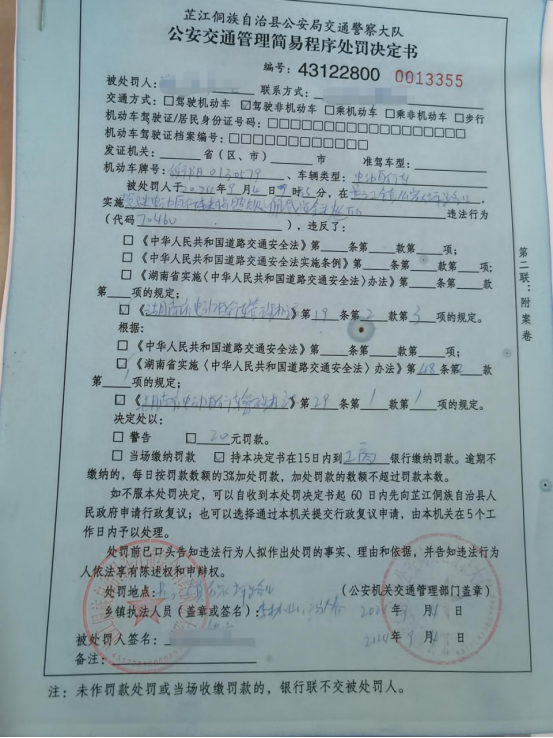 芷江侗族自治县公安局交通警察大队
公安交通管理简易程序处罚决定书
编号：43122800 0013355
被处罚人： 联系方式：
交通方式：□驾驶机动车 ☑驾驶非机动车 □乘机动车 □乘非机动车 □步行
机动车驾驶证/居民身份证号码：□□□□□□□□□□□□□□□□□□
机动车驾驶证档案编号：□□□□□□□□□□□□
发证机关： 省（区、市） 市 准驾车型：
机动车牌号： 、车辆类型：电动自行车
被处罚人于2024年9月6日9时 分，在
实施 违法行为
（代码 ），违反了：
□《中华人民共和国道路交通安全法》第 条第 款第 项；
□《中华人民共和国道路交通安全法实施条例》第 条第 款第 项；
□《湖南省实施〈中华人民共和国道路交通安全法〉办法》第 条第 款
第 项的规定；
《湖南省电动自行车管理办法》第19条第2款第3项的规定。
根据：
□《中华人民共和国道路交通安全法》第 条第 款第 项；
□《湖南省实施〈中华人民共和国道路交通安全法〉办法》第 条第 款
第 项的规定；
□《湖南省电动自行车管理办法》第29条第1款第1项的规定。
决定处以：
□ 警告 20元罚款。
□ 当场缴纳罚款 ☑ 持本决定书在15日内到工商银行缴纳罚款。逾期不
缴纳的，每日按罚款数额的3%加处罚款，加处罚款的数额不超过罚款本数。
如不服本处罚决定，可以自收到本处罚决定书起 60 日内先向芷江侗族自治县人
民政府申请行政复议；也可以选择通过本机关提交行政复议申请，由本机关在5个工
作日内予以处理。
处罚前已口头告知违法行为人拟作出处罚的事实、理由和依据，并告知违法行为
人依法享有陈述权和申辩权。
处罚地点： （公安机关交通管理部门盖章）
乡镇执法人员（盖章或签名）： 2024年9月6日
被处罚人签名： 2024年9月6日
备注：
注：未作罚款处罚或当场收缴罚款的，银行联不交被处罚人。
第二联：附案卷